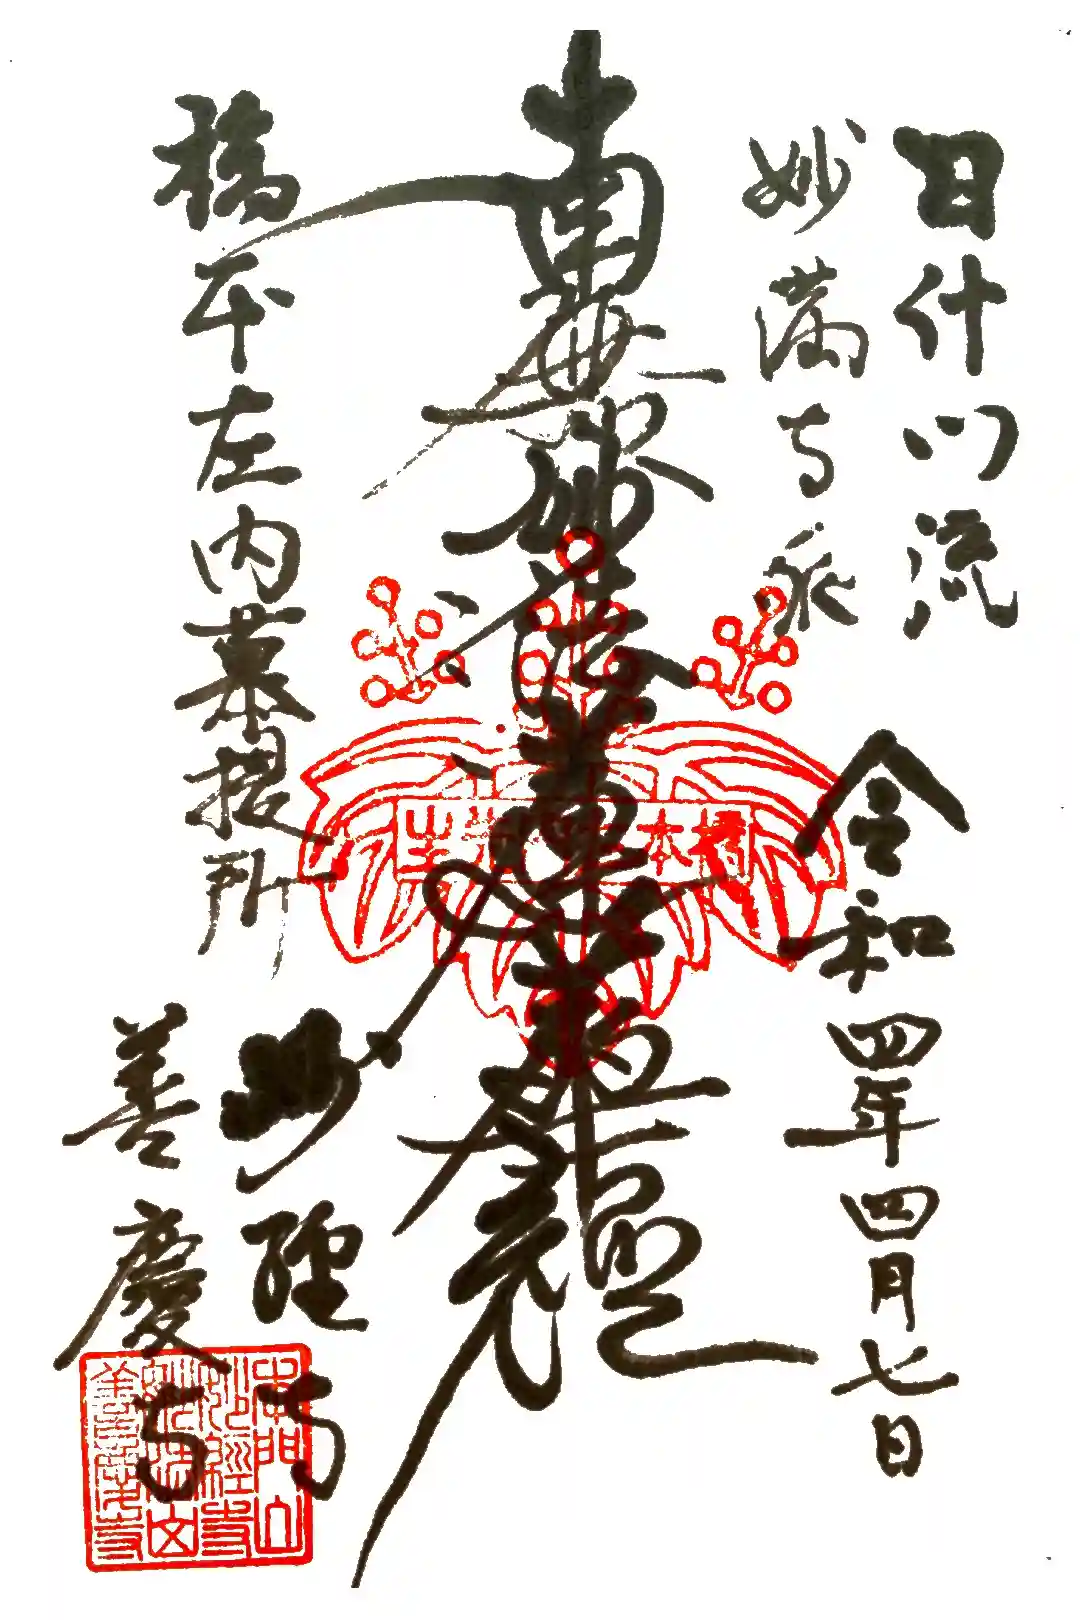 日什門流
妙満寺派
令和四年四月七日
南無妙法蓮華経
橋本左内墓提所
妙経寺
善慶寺